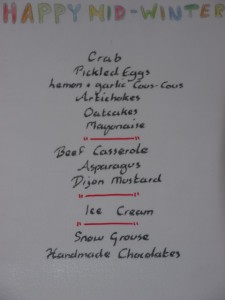 HAPPY MID-WINTER
Crab
Pickled Eggs
Lemon + garlic Cous-Cous
Artichokes
Oatcakes
Mayonaise
Beef Casserole
Asparagus
Dijon Mustard
Ice Cream
Snow Grouse
Handmade Chocolates